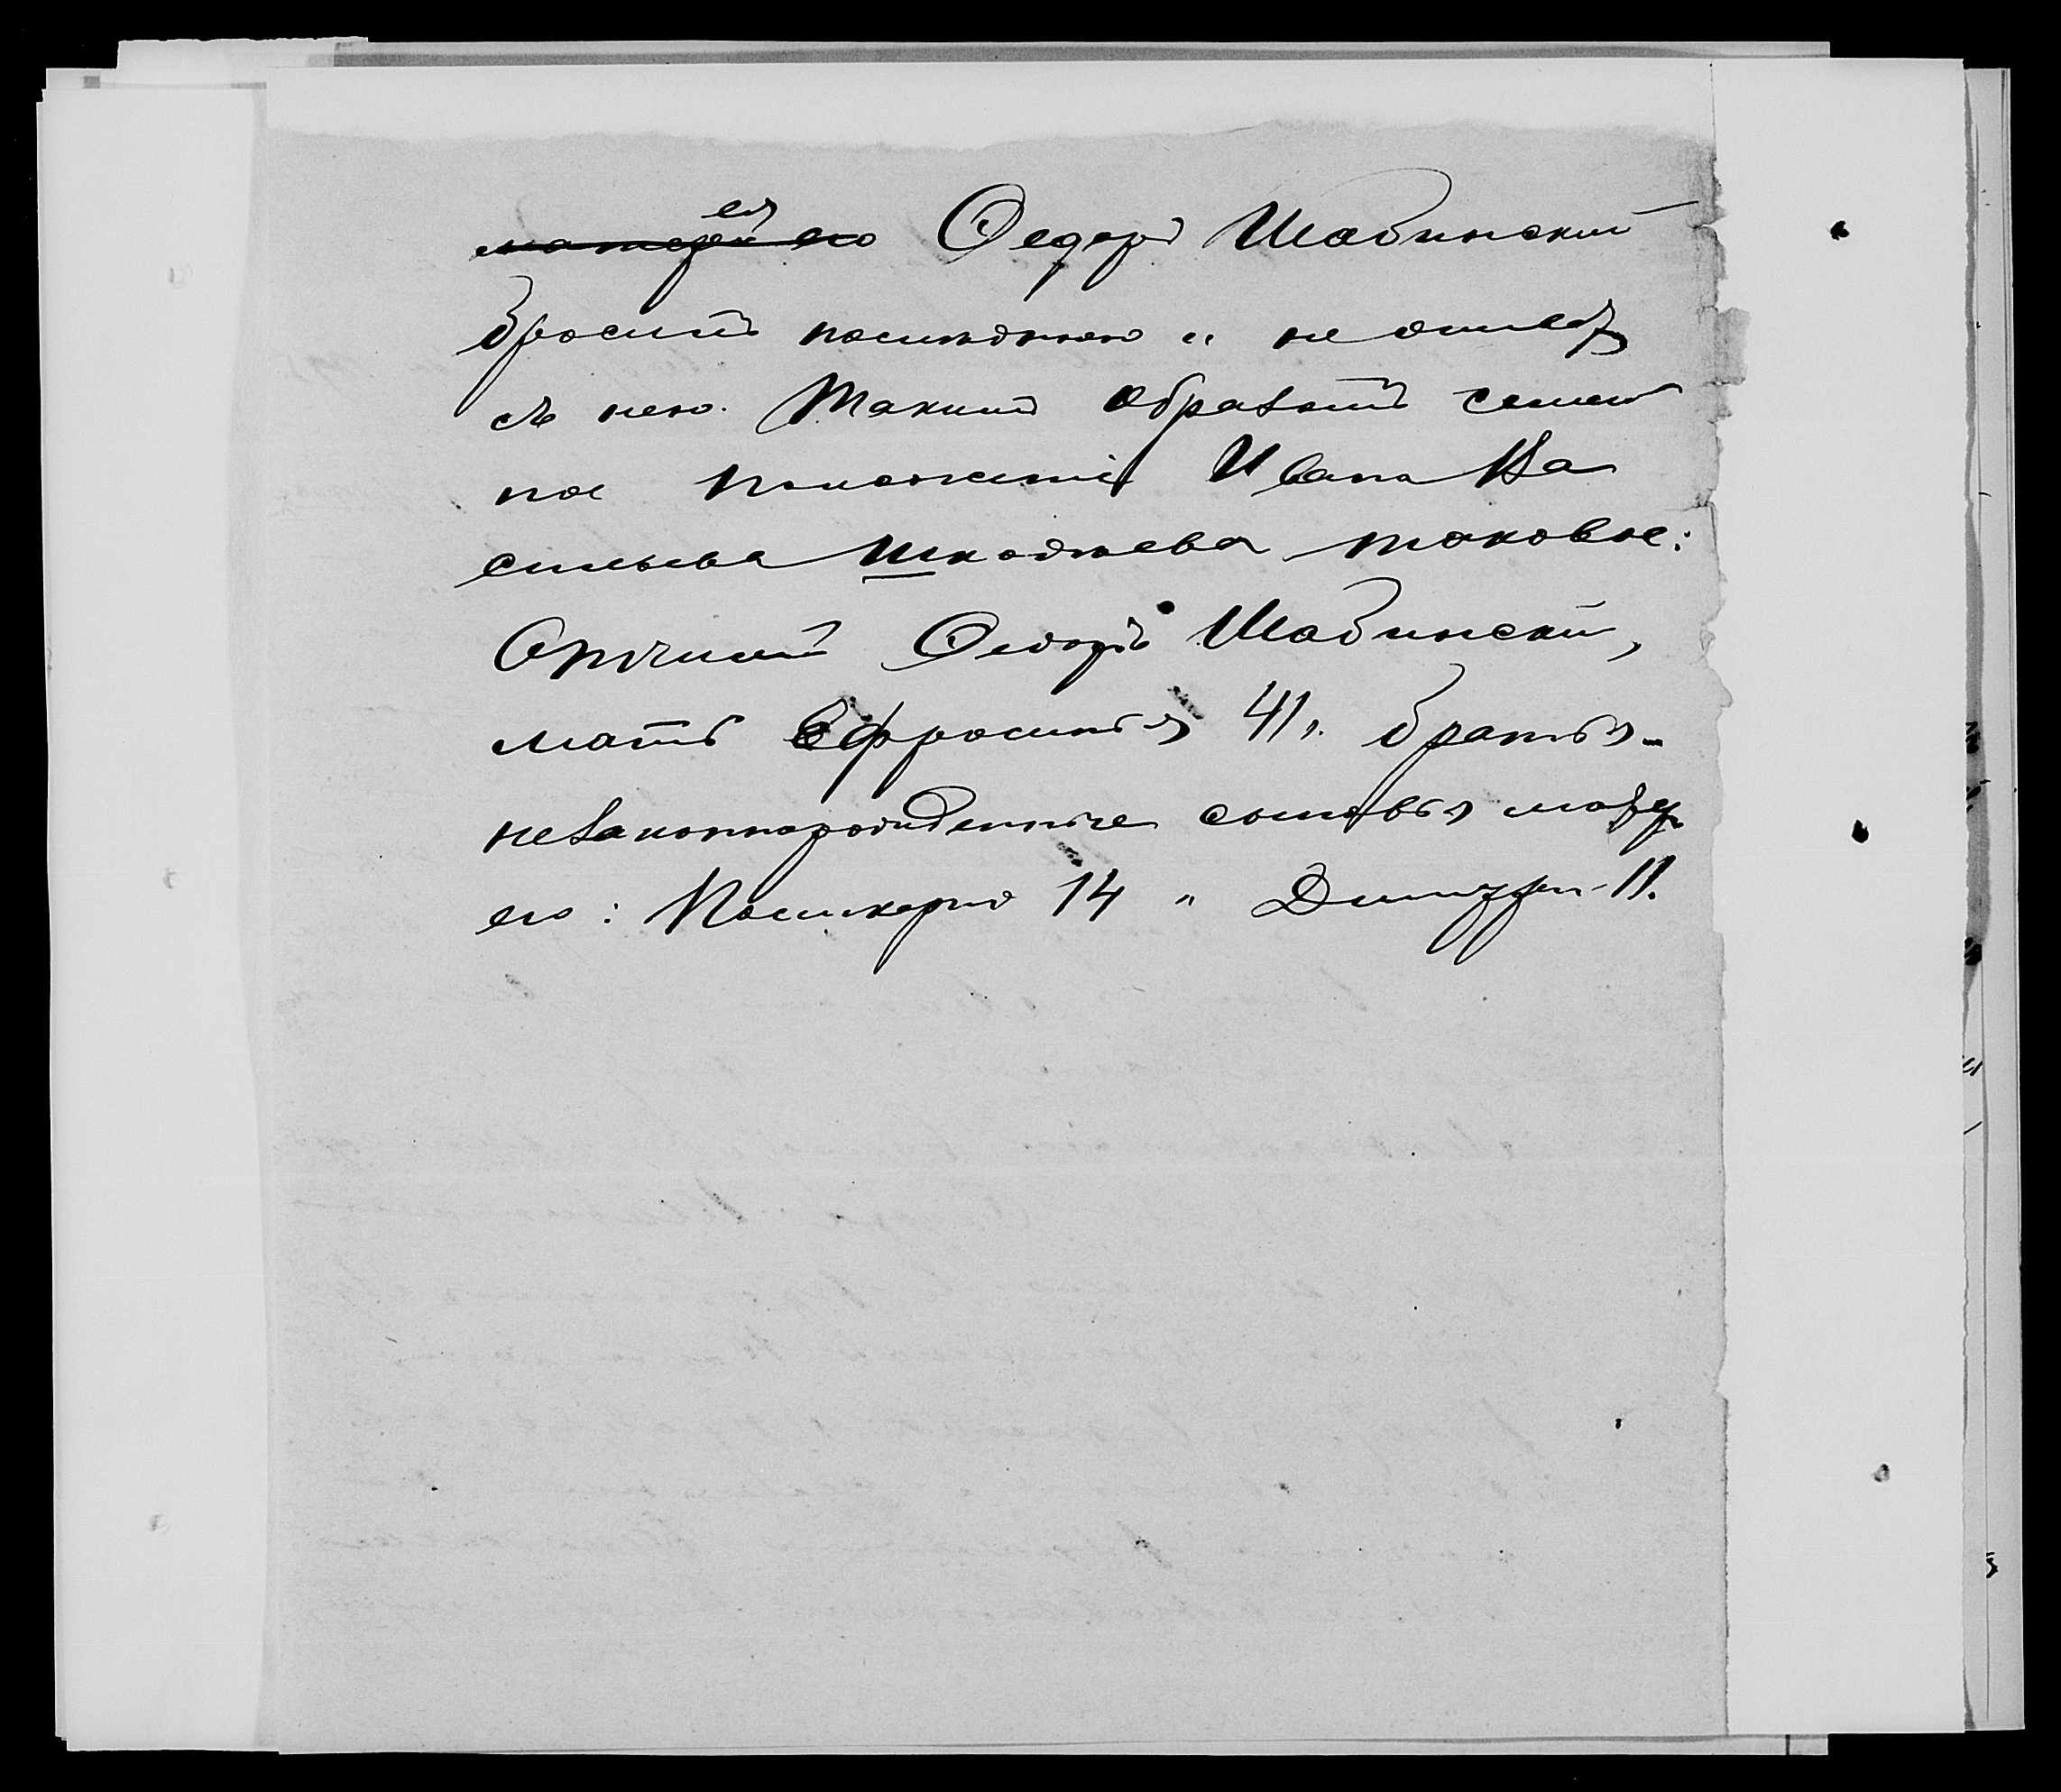 ея
матерей его Ѳедоръ Шабинский
бросилъ последнюю и не живетъ
съ нею. Такимъ образомъ семей
ное положеніе Ивана Ва
сильева Шкаднева таковое:
Отчимъ Ѳедоръ Шабинский,
мать Ефросинья 41. братья-
незаконнорожденные сыновья матери
его: Поликарпъ 14 и Дмитрій 11.